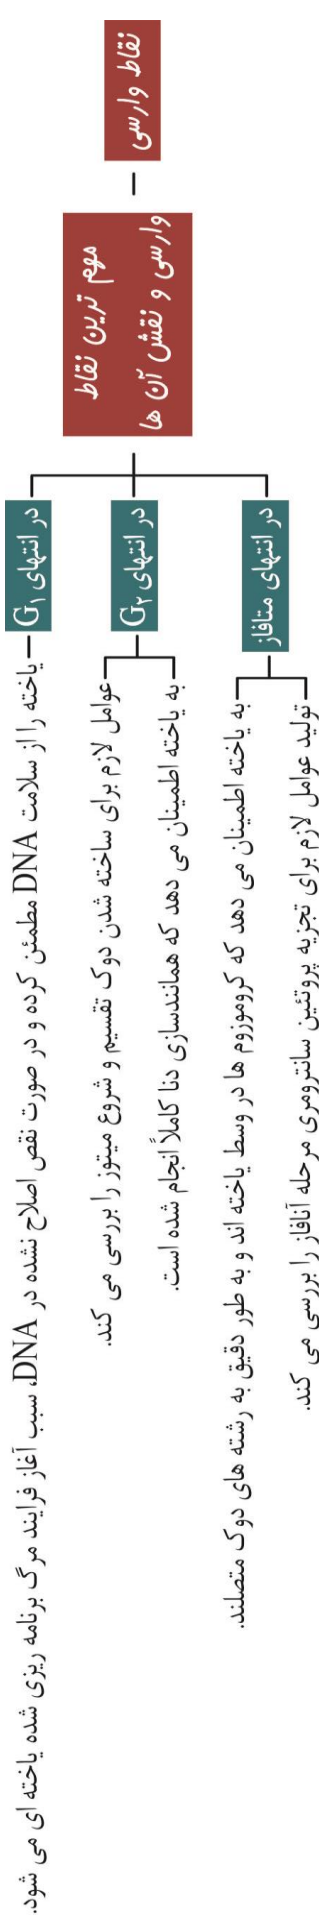 نقاط وارسی
مهم ترین نقاط
وارسی و نقش آن ها
در انتهای G۱
یاخته را از سلامت DNA مطمئن کرده و در صورت نقص اصلاح نشده در DNA، سبب آغاز فرایند مرگ برنامه ریزی شده یاخته ای می شود.
در انتهای G۲
عوامل لازم برای ساخته شدن دوک تقسیم و شروع میتوز را بررسی می کند.
به یاخته اطمینان می دهد که همانندسازی دنا کاملاً انجام شده است.
در انتهای متافاز
به یاخته اطمینان می دهد که کروموزوم ها در وسط یاخته اند و به طور دقیق به رشته های دوک متصلند.
تولید عوامل لازم برای تجزیه پروتئین سانترومری مرحله آنافاز را بررسی می کند.